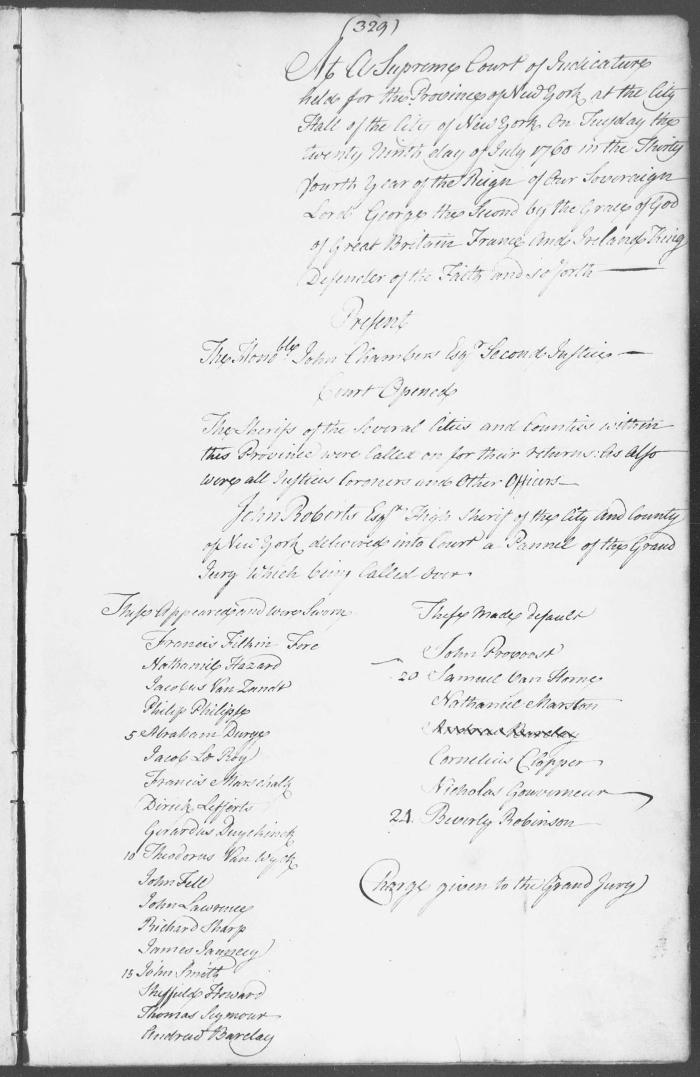 (329)
At A Supreme Court of Judicature
held for the Province of New York at the City
Hall of the City of New York On Tuesday the
twenty Ninth day of July 1760 in the Thirty
fourth Year of the Reign of Our Sovereign
Lord George the Second by the Grace of God
of Great Britain France And Ireland King
Defender of the Faith and so forth —
Present
The Honoble John Chambers Esqr Second Justice —
Court Opened
The Sherifs of the Several Cities and Counties within
this Province were Called on for their returns: As Also
were all Justices Coroners and Other Officers —
John Roberts Esqr High Sherif of the City And County
of New York delivered into Court a Pannel of the Grand
Jury Which being Called Over
These Appeared and were Sworn
Francis Filkin Fore
Nathaniel Hazard
Jacobus Van Zandt
Philip Philipse
5 Abraham Durye
Jacob Le Roy
Francis Marschalk
Dirick Lefferts
Gerardus Duyckinck
10 Theodorus Van Wyck
John Fell
John Lawrence
Richard Sharp
James Jauncey
15 John Smith
Sheffield Howard
Thomas Seymour
Andrew Barclay
These Made default
John Provoost
20 Samuel Van Horne
Nathaniel Marston
Andrew Barclay
Cornelius Clopper
Nicholas Gouverneur
24. Beverly Robinson
Charge given to the Grand Jury